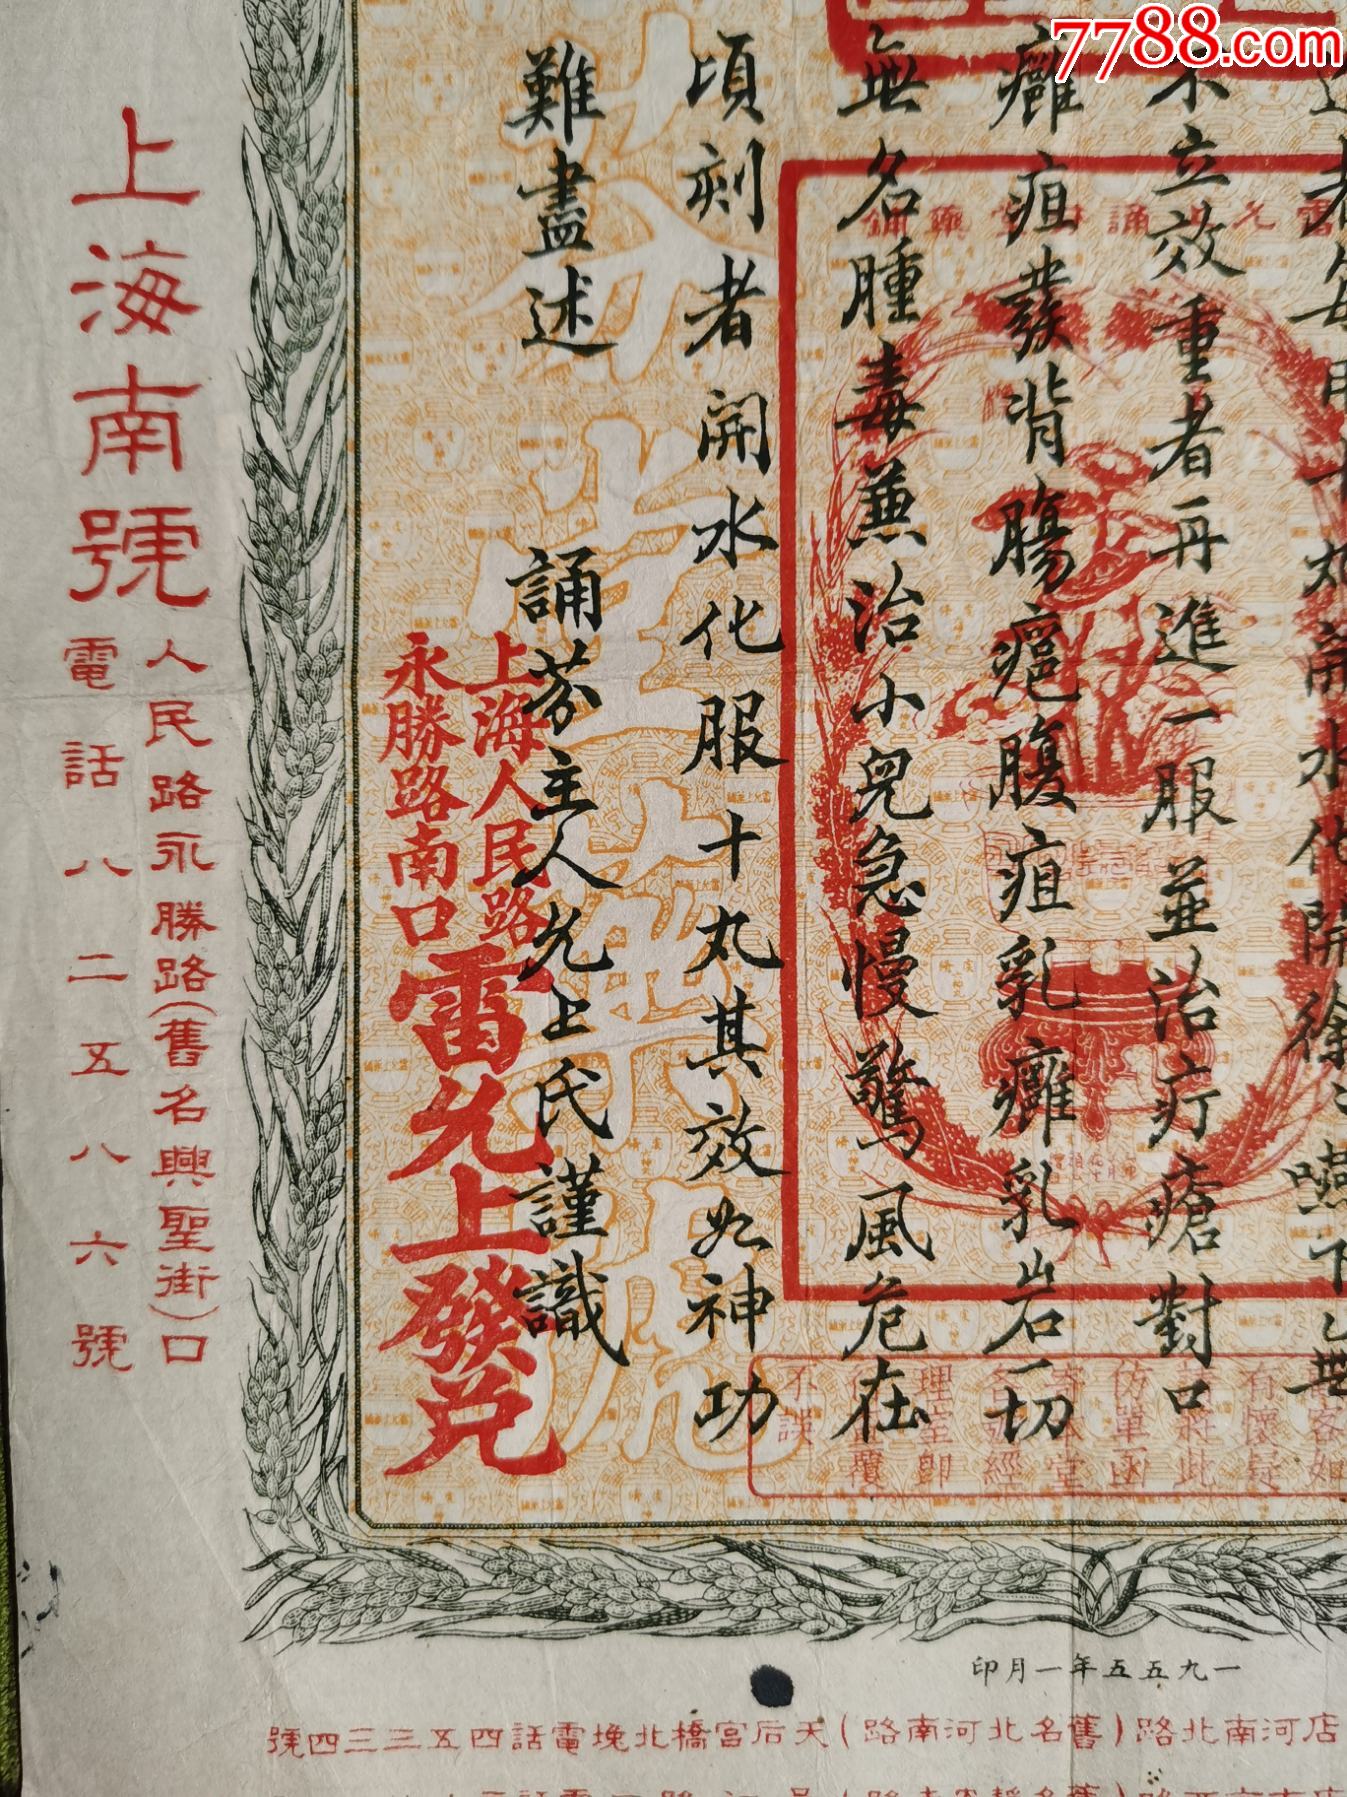 7788.com
水化開徐徐嚥下無
不立效重者再進一服並治疔瘡對口
癰疽發背腸癰腹疽乳癰乳岩一切
無名腫毒兼治小兒急慢驚風危在
頃刻者開水化服十丸其效如神功
難盡述
誦芬主人允上氏謹識
上海人民路
永勝路南口
雷允上發兌
上海南號
人民路永勝路(舊名興聖街)口
電話八二五八六號
不誤
一九五五年一月印
店河南北路(舊名北河南路)天后宮橋北塊電話四五三三四號